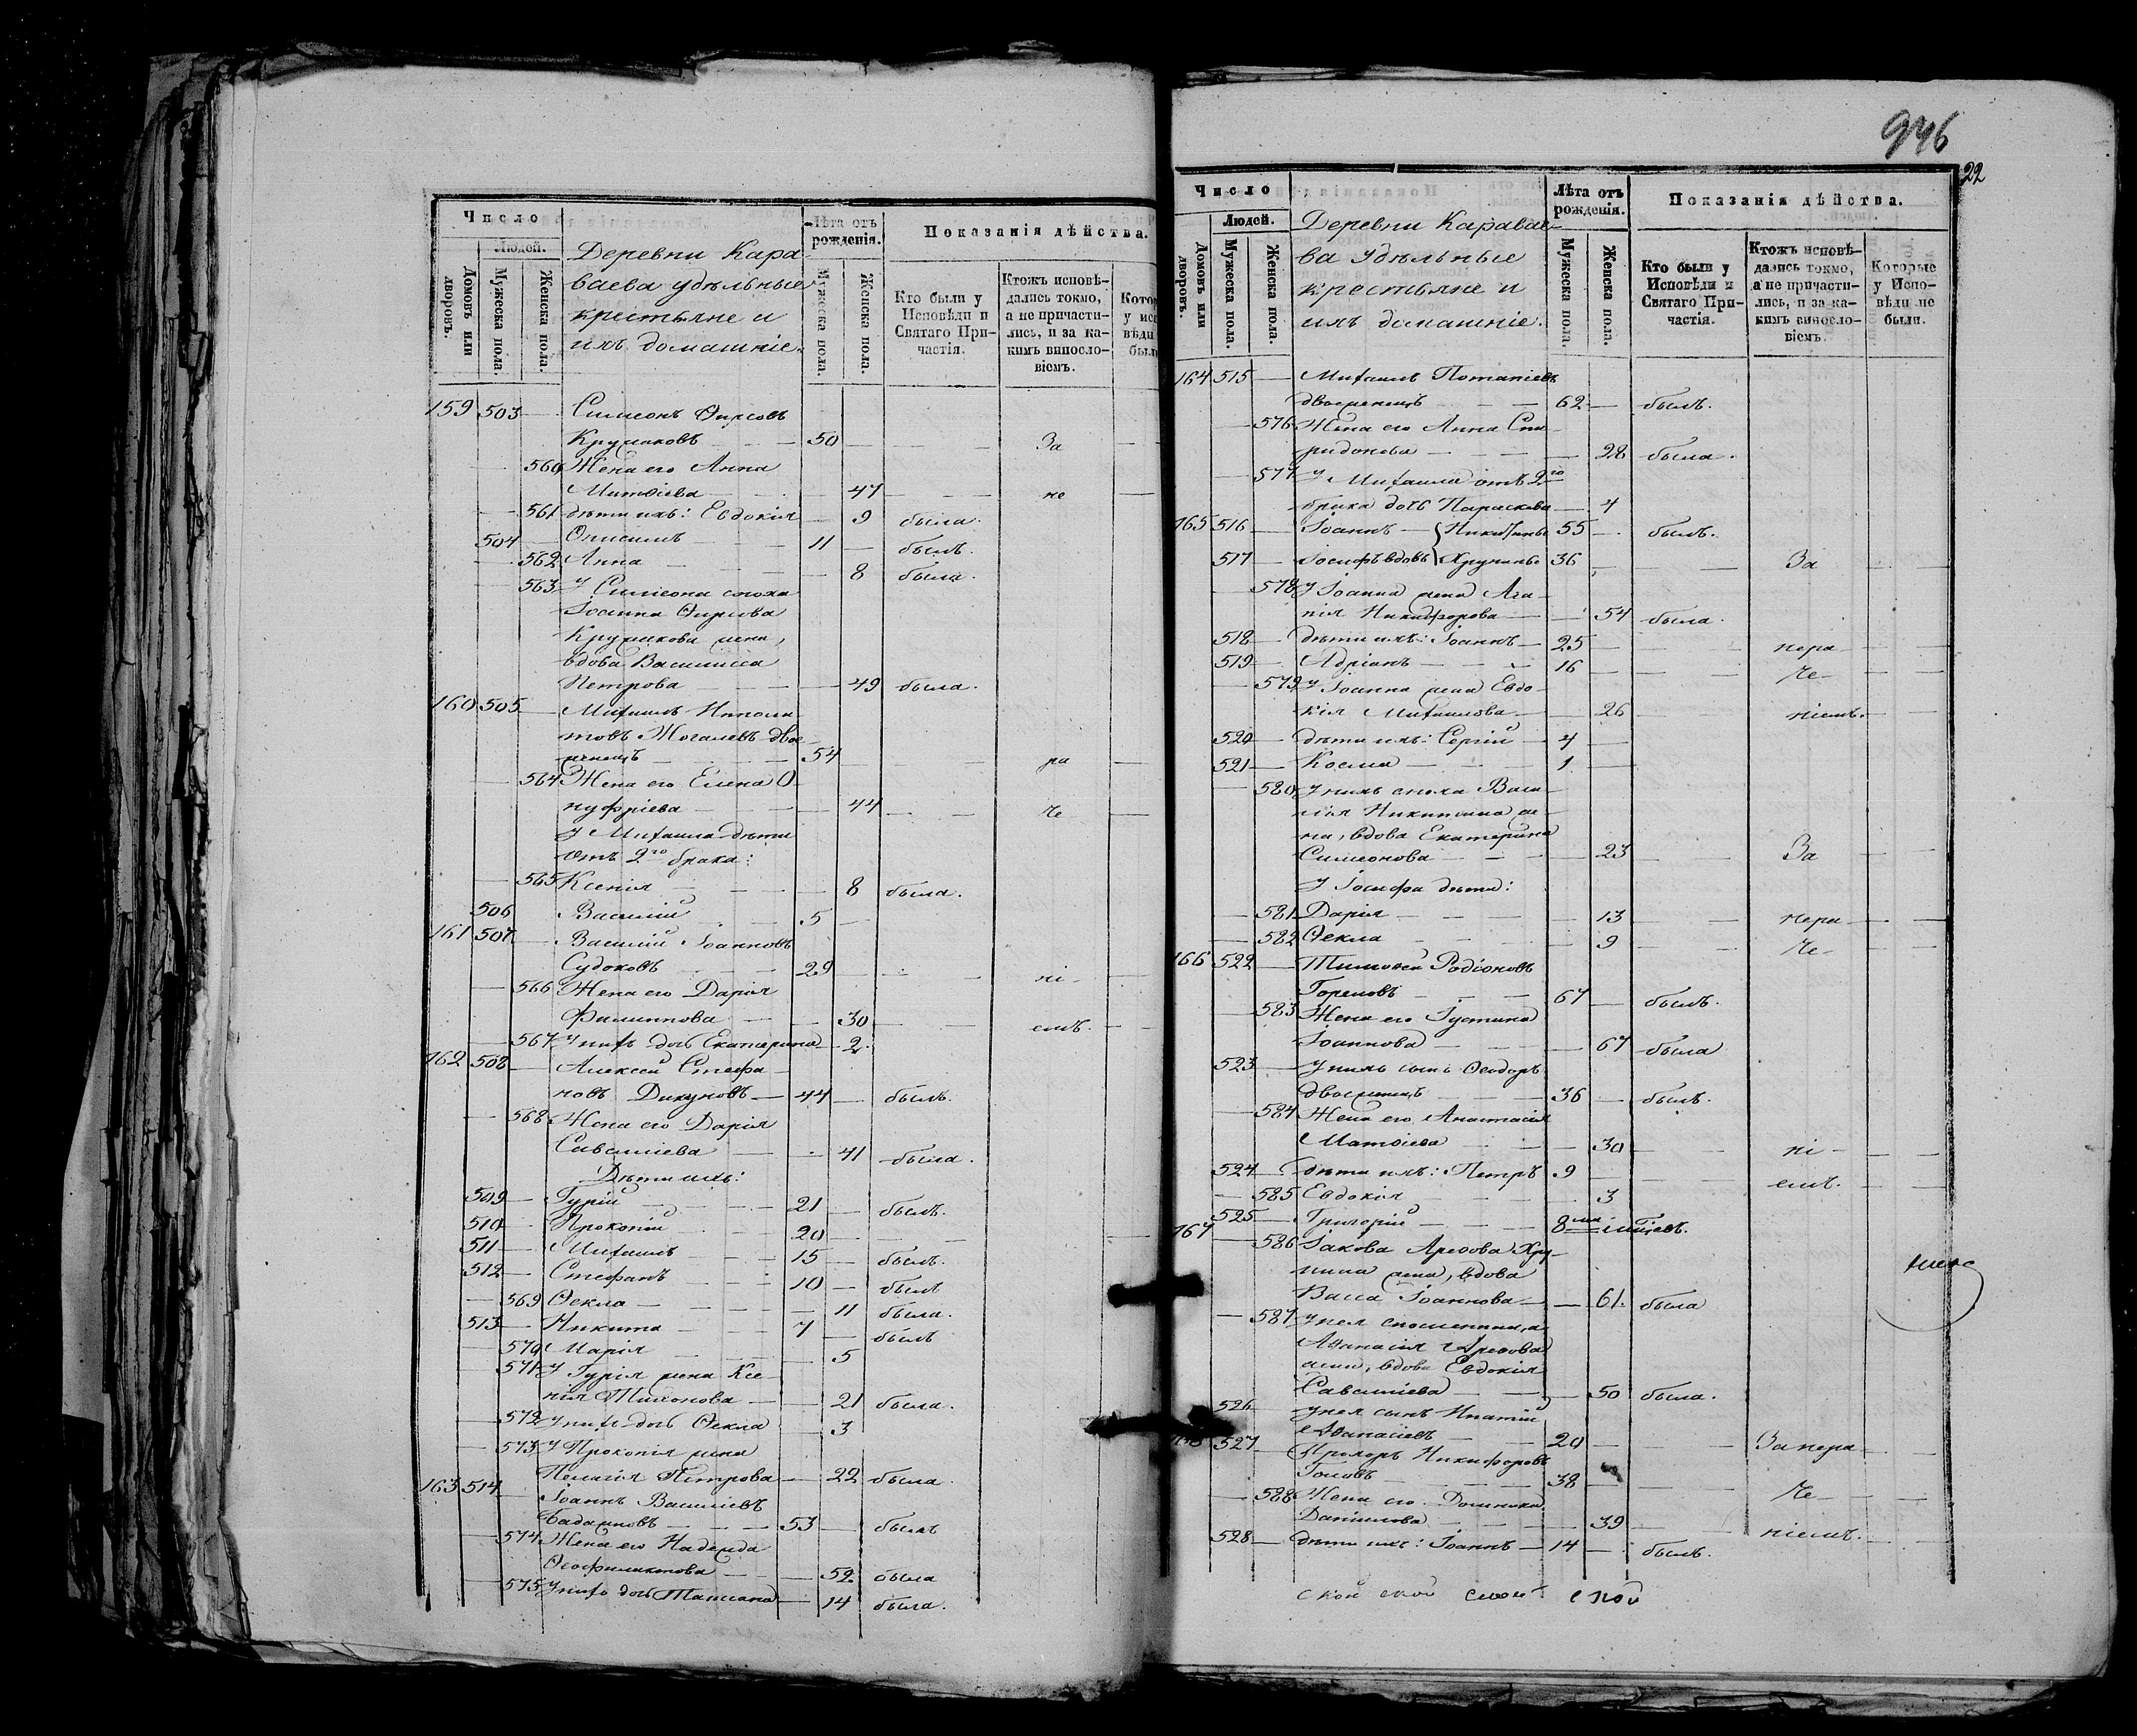 Число
Людей.
Домовъ или дворовъ.
Мужеска пола.
Женска пола.
Деревни Кара-
ваева удѣльные
крестьяне и
ихъ домашніе.
Лѣта отъ рожденія.
Мужеска пола.
Женска пола.
Показанія дѣйства.
Кто были у Исповѣди и Святаго Причастія.
Ктожъ исповѣдались токмо, а не причастились, и за какимъ винословіемъ.
159 503 Симеонъ Ѳирсовъ
50 За
560 Жена его Анна
Матѳіева 47 не
561 дѣти ихъ: Евдокія 9 была.
504 Онисимъ 11 былъ.
562 Анна 8 была.
563 У Симеона сноха
Іоанна Ѳирсова
жена,
вдова Василисса
Петрова 49 была.
160 505 Михаилъ Ипполи-
товъ двое-
женецъ 54 ра
564 Жена его Елена О-
нуфріева 44 че
У Михаила дѣти
отъ 2го брака:
565 Ксенія 8 была.
506 Василій 5
161 507 Василій Іоанновъ
Судоковъ 29 ні-
566 Жена его Дарія
Филиппова 30 емъ.
567 У нихъ дочь Екатерина 2
162 508 Алексѣй Стефа-
новъ Дикуновъ 44 былъ.
568 Жена его Дарія
Савельева 41 была.
Дѣти ихъ:
509 Гурій 21 былъ.
510 Прокопій 20
511 Михаилъ 15 былъ.
512 Стефанъ 10 былъ
569 Ѳекла 11 была.
513 Никита 7 былъ
570 Марія 5
571 У Гурія жена Ксе-
нія Тимонова 21 была.
572 У нихъ дочь Ѳекла 3
573 У Прокопія жена
Пелагія Петрова 22 была.
163 514 Іоаннъ Василіевъ
53 былъ
574 Жена его Надежда
Ѳеофилактова 52 была
575 У нихъ дочь Татіана 14 была.
946
22
Число
Людей.
Домовъ или дворовъ.
Мужеска пола.
Женска пола.
Деревни Каравае-
ва удѣльные
крестьяне и
ихъ домашніе.
Лѣта отъ рожденія.
Мужеска пола.
Женска пола.
Показанія дѣйства.
Кто были у Исповѣди и Святаго Причастія.
Ктожъ исповѣдались токмо, а не причастились, и за какимъ винословіемъ.
Которые у Исповѣди не были.
164 515 Михаилъ Потапіевъ
двоеженецъ 62 былъ.
576 Жена его Анна Спи-
ридонова 28 была.
577 У Михаила отъ 2го
брака дочь Параскева 4
165 516 Іоаннъ Никитины 55 былъ.
517 Іосифъ вдовъ Хрунины 36 За
578 У Іоанна жена Ага-
пія Никифорова 54 была.
518 дѣти ихъ: Іоаннъ 25 нера
519 Адріанъ 16 Че-
579 У Іоанна жена Евдо-
кія Михаилова 26 ніемъ.
520 дѣти ихъ: Сергій 4
521 Косма 1
580 У нихъ сноха Васи-
лія Никитина же-
на, вдова Екатерина
Симеонова 23 За
У Іосифа дѣти:
581 Дарія 13 нера
582 Ѳекла 9 Че-
166 522 Тимоѳей Родіоновъ
67 былъ.
583 Жена его Іустина
Іоаннова 67 была
523 У нихъ сынъ Ѳеодоръ
двоеженецъ 36 былъ.
584 Жена его Анастасія
Матѳіева 30 ні-
524 дѣти ихъ: Петръ 9 емъ.
585 Евдокія 3
525 Григорій 8ми мѣсяцев.
167 586 Іакова Ареѳова Хру-
нина жена, вдова
Васса Іоаннова 61. была
587 У нея
Аѳанасія Ареѳова
жена, вдова Евдокія
Савельева 50 была.
526 У нея сынъ Ипатій
Аѳанасіевъ 20 За нера
168 527 Прохоръ Никифоровъ
38 Че-
588 Жена его Домника
Даніилова 39 ніемъ.
528 дѣти ихъ: Іоаннъ 14 былъ.